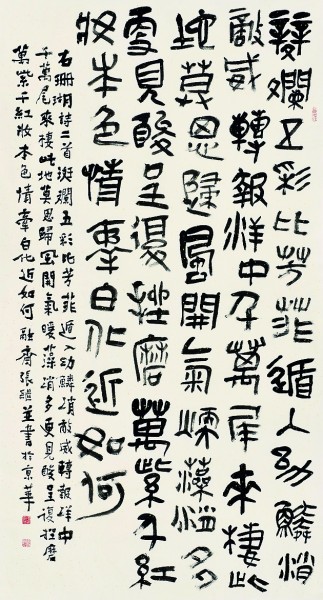 斑斕五彩比芳菲遁入幼鱗消
敵威轉報洋中千萬尾來棲此
地莫思歸風開氣暖藻消多
更見酸呈復挫磨萬紫千紅
妝本色情牽白化近如何
右珊瑚詩二首斑斕五彩比芳菲遁入幼鱗消敵威轉報洋中
千萬尾來棲此地莫思歸風開氣暖藻消多更見酸呈復挫磨
萬紫千紅妝本色情牽白化近如何 融齋張繼並書於京華